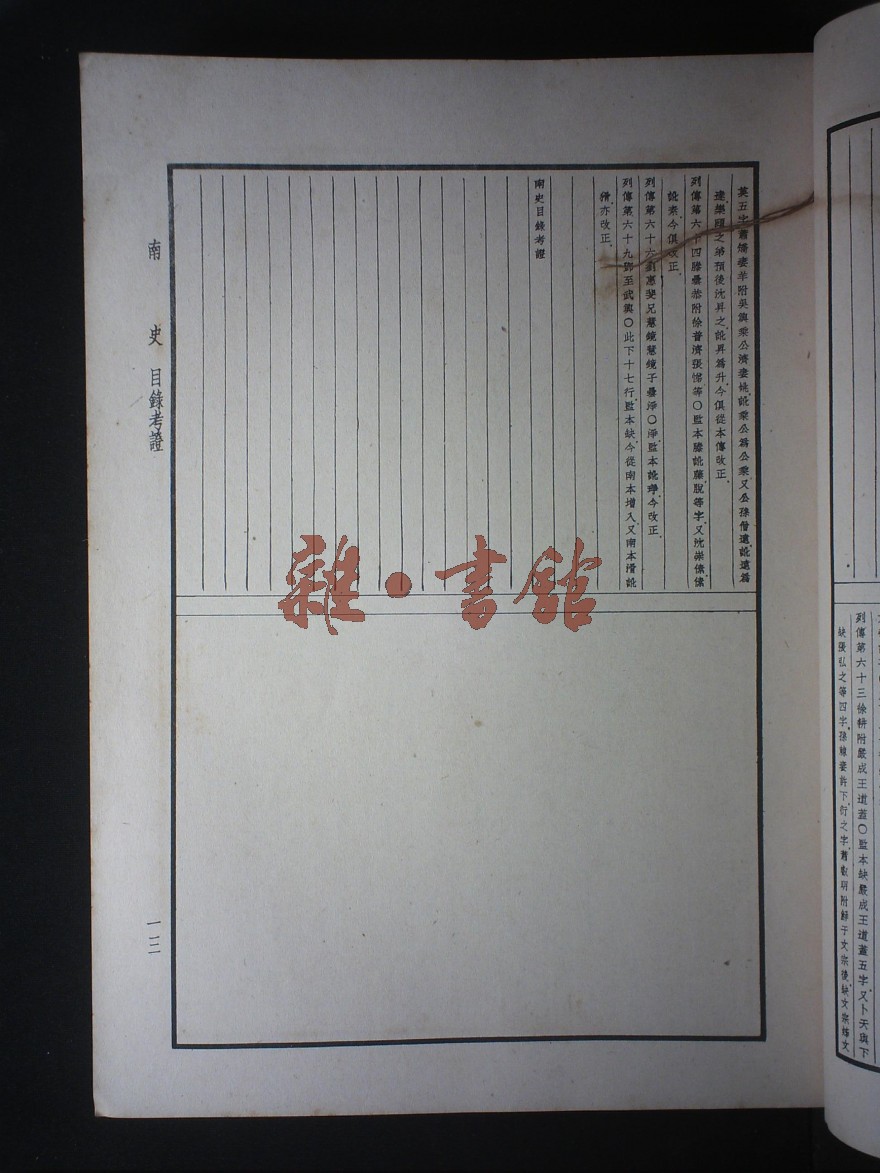 英五字蕭矯妻羊附吳興乘公濟妻姚訛乘公爲公乘又公孫僧遠訛遠爲
達樂頤之弟預後沈昇之訛昇爲升今俱從本傳改正
列傳第六十四滕曇恭附徐普濟張悌等〇監本滕訛藤脫等字又沈崇傃傃
訛素今俱改正
列傳第六十六劉慧斐兄慧鏡慧鏡子曇淨〇淨監本訛琤今改正
列傳第六十九鄧至武興〇此下十七行監本缺今從南本增入又南本滑訛
猾亦改正
南史目錄考證
南史 目錄考證
一三
列傳第六十三徐耕附嚴成王道蓋〇監本缺嚴成王道蓋五字又卜天與下
缺張弘之等四字孫棘妻許下衍之字蕭叡明附鮮于文宗後缺文宗姊文
雜·書館